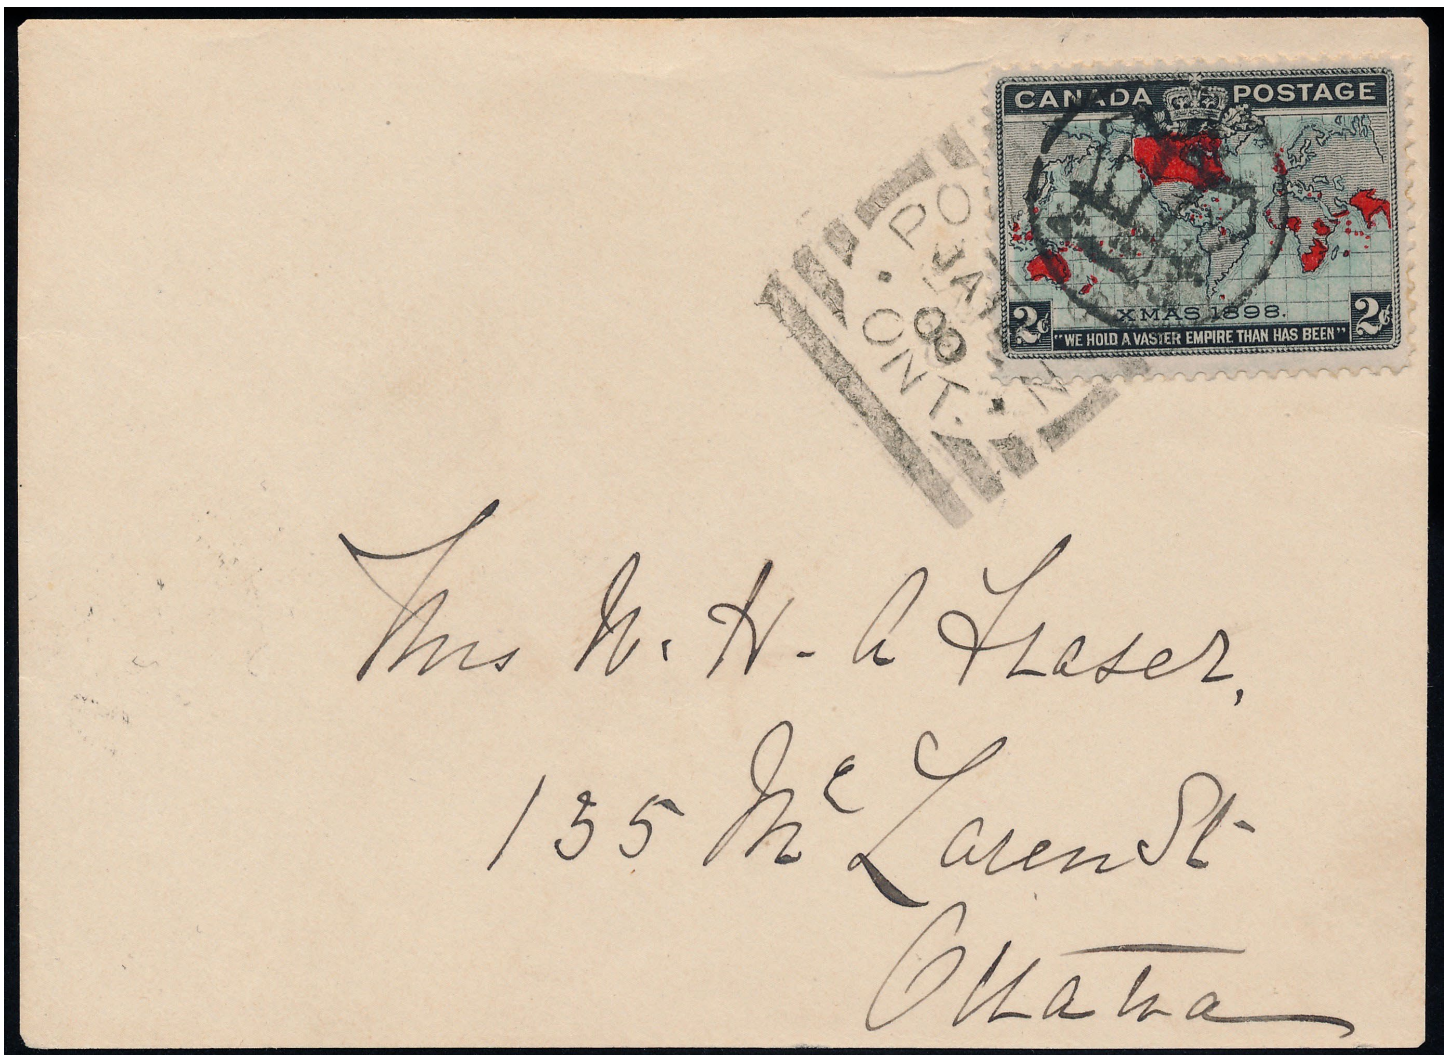 CANADA POSTAGE
XMAS 1898.
2c 2c
"WE HOLD A VASTER EMPIRE THAN HAS BEEN"
ONT.
Mrs W. H. A Fraser,
135 Mc Laren St
Ottawa